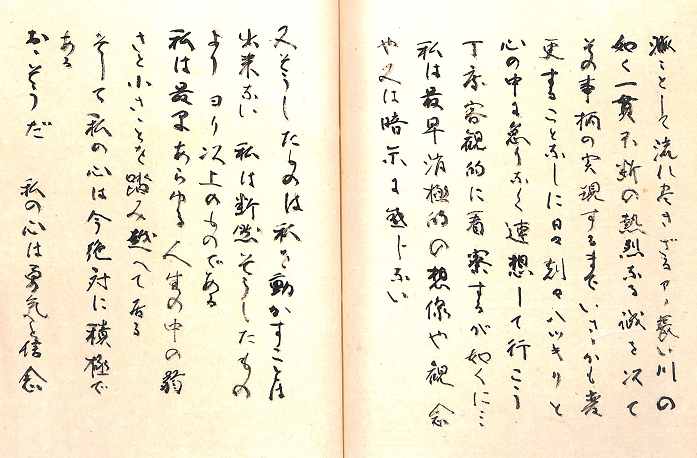 滾々として流れ尽きざる長い川の
如く一貫不断の熱烈なる誠を以て
その事柄の実現するまでいさゝかも変
更することなしに日々刻々ハッキリと
心の中に怠りなく連想して行こう
丁度客観的に看察するが如くに…
私は最早消極的の想像や観念
や又は暗示に感じない
又そうしたものは私を動かすことは
出来ない 私は断然そうしたもの
より ヨリ以上のものである
私は最早あらゆる人生の中の弱
さと小さことを踏み越へて居る
そして私の心は今絶対に積極で
ある
おゝそうだ 私の心は勇気と信念